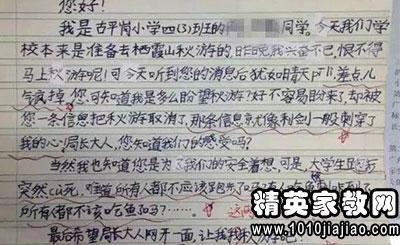 您好!
我是古平岗小学四(3)班的 同学,今天我们学
校本来是准备去栖霞山秋游的,昨晚我兴奋不已,恨不得
马上秋游呢!可今天听到您的消息后犹如晴天 ,差点儿
气疯掉。您可知道我是多么盼望秋游?好不容易盼来了,却被
您一条信息把秋游取消了,那条信息就像利剑一般刺穿了
我的心。局长大人,您知道我们的感受吗?
当然我也知道您是为了我们的安全着想,可是,大学生跑
突然 死,难道所有人都不应该跑步
所有人都不该吃鱼了吗?……。这
最后希望局长大人网开一面,让我
精英家教网
www.1010jiajiao.com